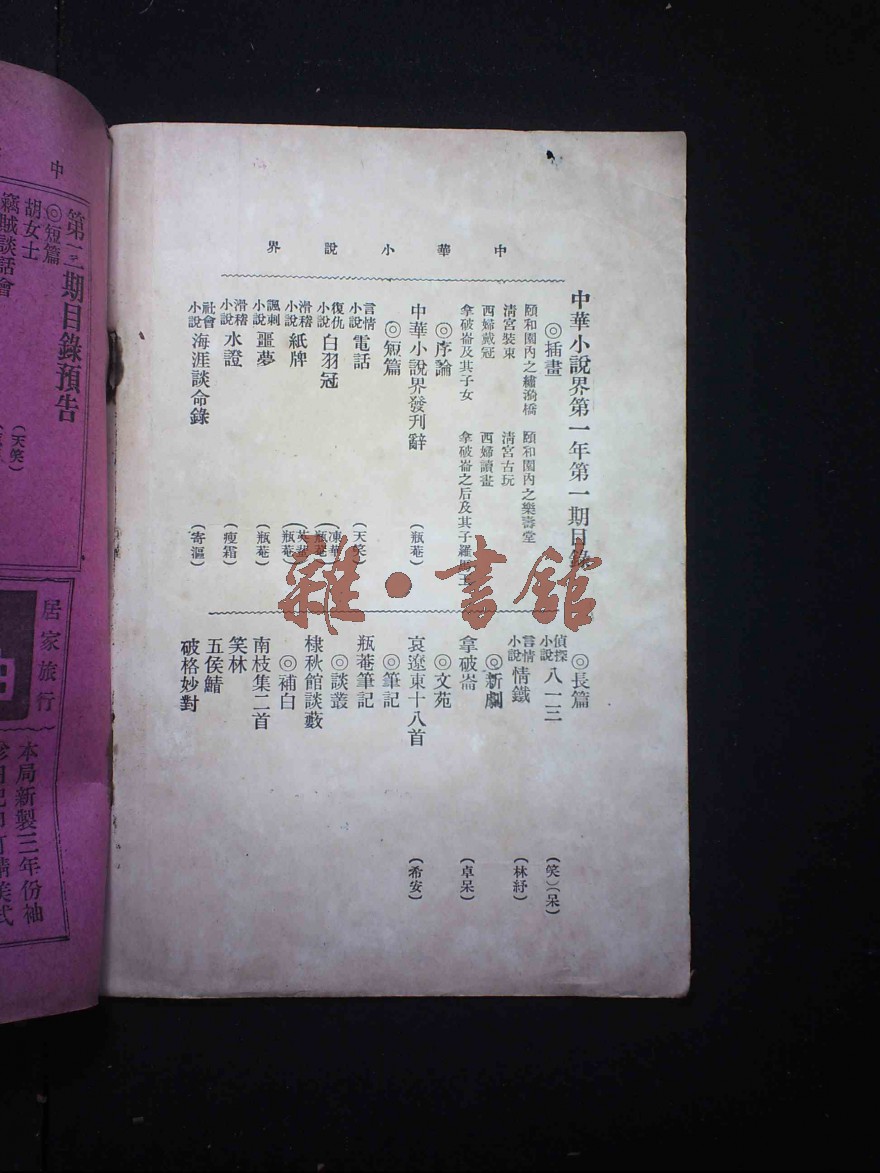 中華小說界
中華小說界第一年第一期目錄
◎插畫
頤和園內之繡漪橋 頤和園內之樂壽堂
清宮裝束 清宮古玩
西婦戴冠 西婦讀畫
拿破崙及其子女 拿破崙之后及其子羅馬王
◎序論
中華小說界發刊辭 (瓶菴)
◎短篇
言情小說 電話 (天笑)
復仇小說 白羽冠 (凍華)(瓶菴)
滑稽小說 紙牌 (瓶菴)
諷刺小說 噩夢 (瓶菴)
滑稽小說 水證 (瘦霜)
社會小說 海涯談命錄 (寄漚)
◎長篇
偵探小說 八一三 (笑)(呆)
言情小說 情鐵 (林紓)
◎新劇
拿破崙 (卓呆)
◎文苑
哀遼東十八首 (希安)
◎筆記
瓶菴筆記
◎談叢
棣秋館談藪
◎補白
南枝集二首
笑林
五侯鯖
破格妙對
雜·書館
中
第三期目錄預告
◎短篇
胡女士 (天笑)
竊賊談話會
居家旅行
本局新製三年份袖